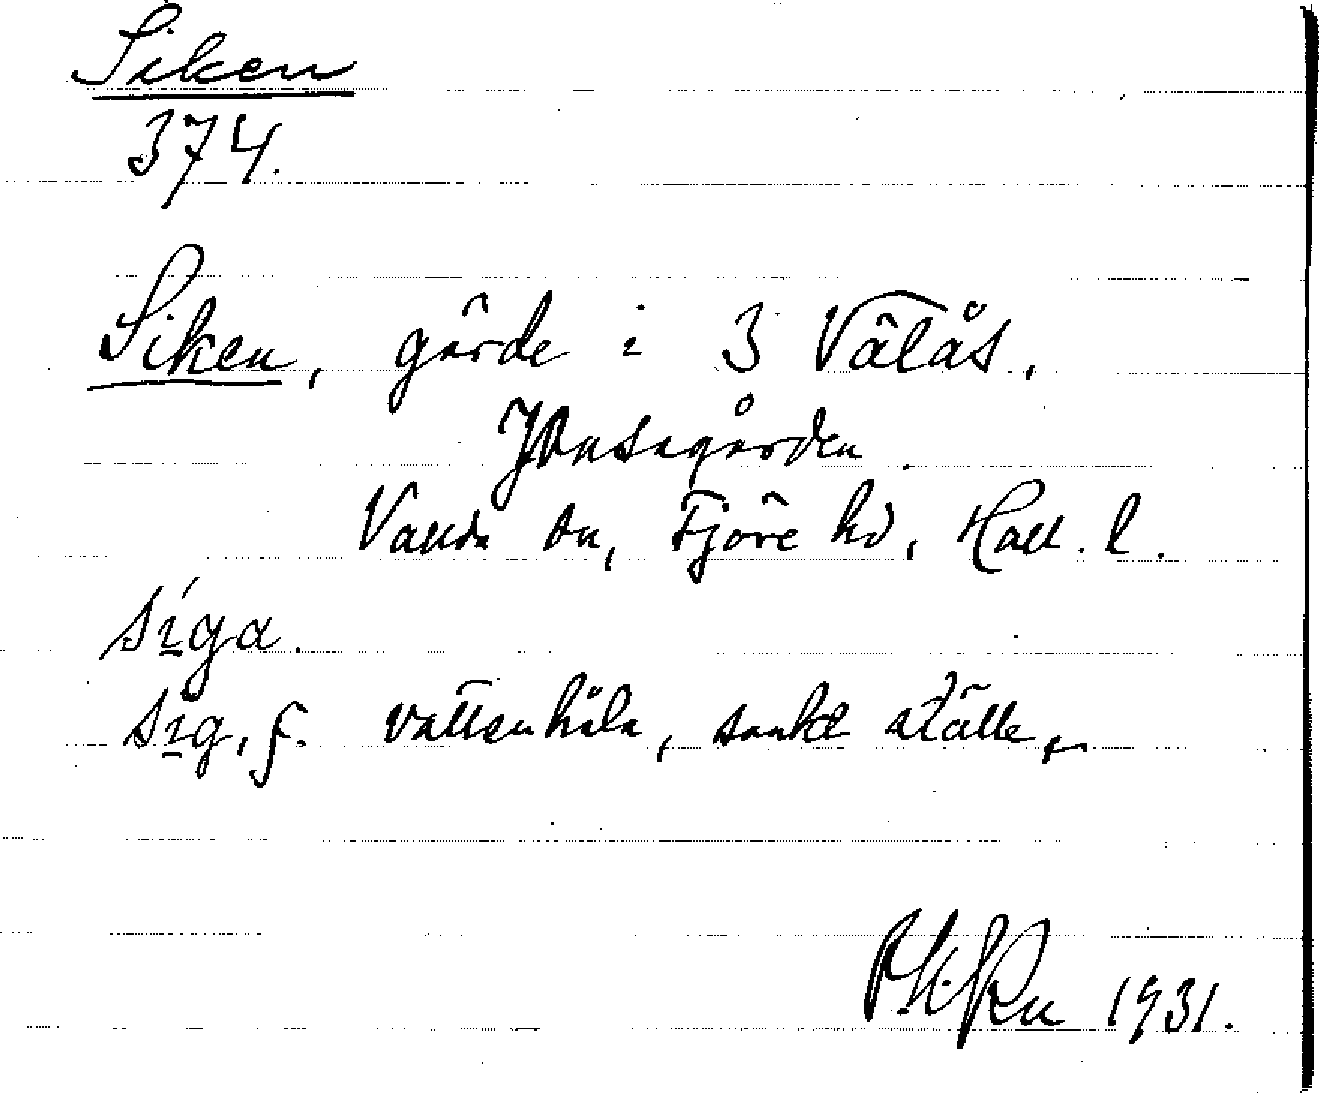 Siken
374.
Siken, gärde i 3 Välås,
Jönsagården
Vallda sn, Fjäre hd, Hall. l.
siga.
sig, f. vattenhåla, sankt ställe,
1931.